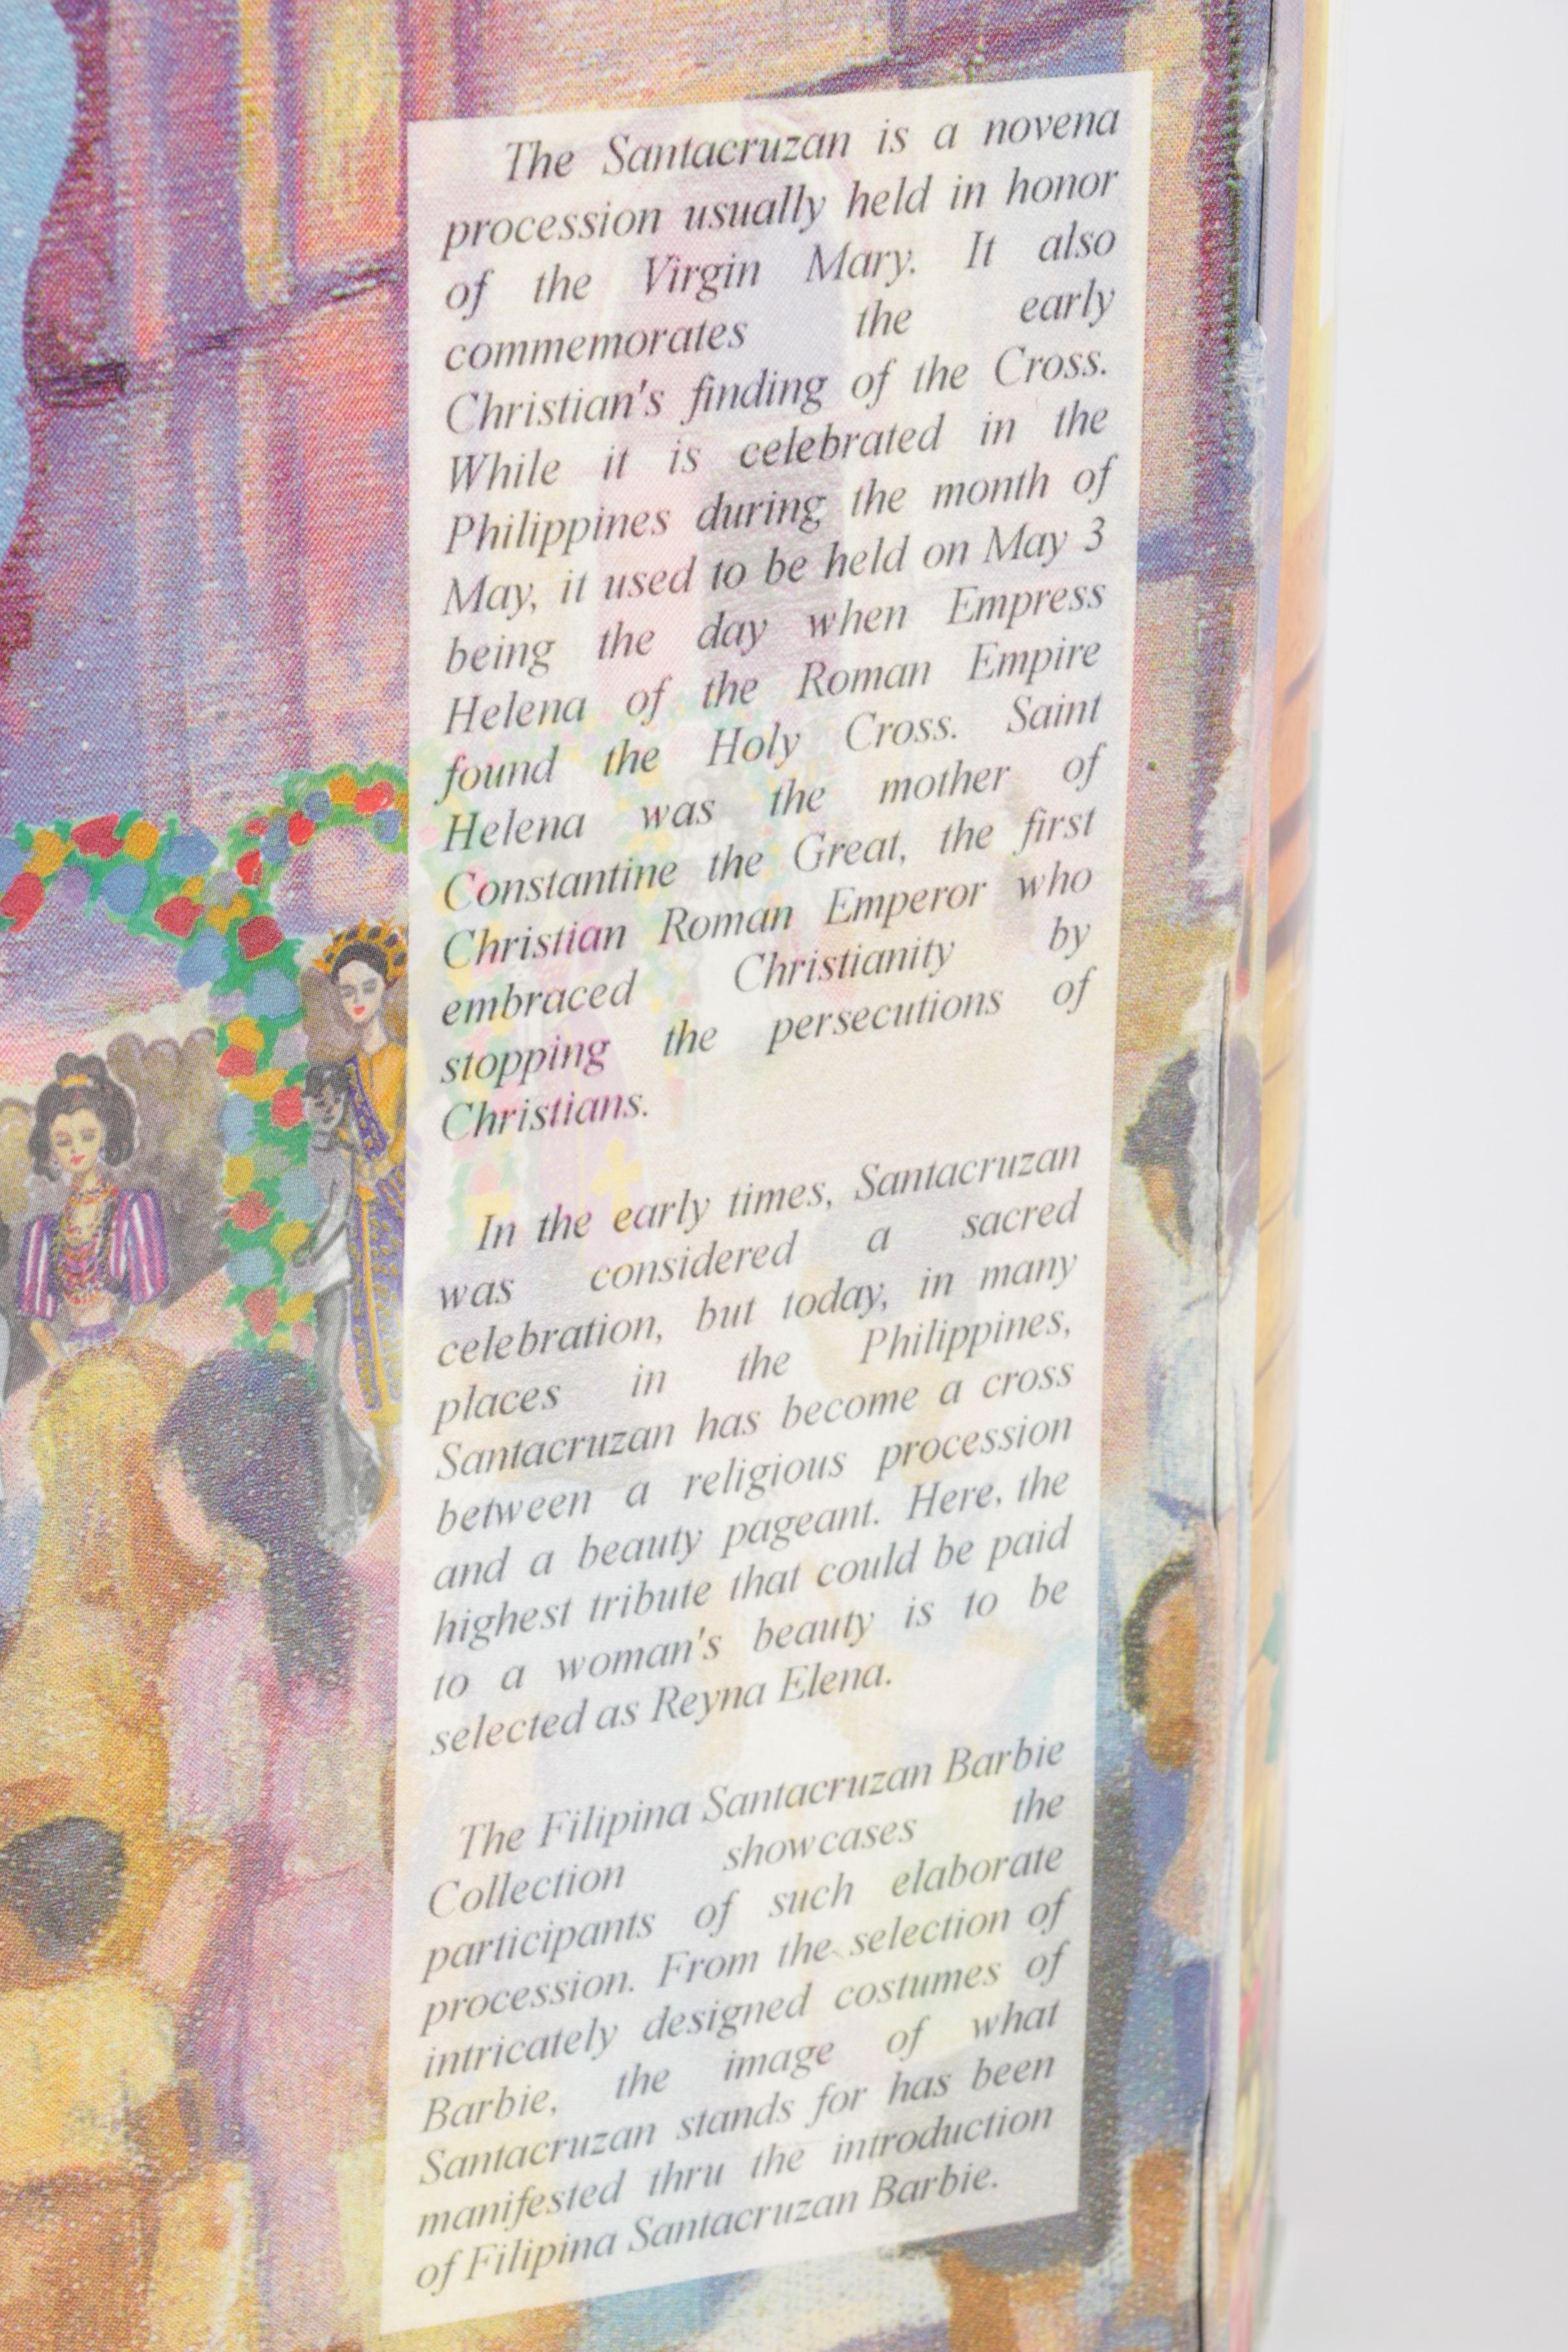 The Santacruzan is a novena
procession usually held in honor
of the Virgin Mary. It also
commemorates the early
Christian's finding of the Cross.
While it is celebrated in the
Philippines during the month of
May, it used to be held on May 3
being the day when Empress
Helena of the Roman Empire
found the Holy Cross. Saint
Helena was the mother of
Constantine the Great, the first
Christian Roman Emperor who
embraced Christianity by
stopping the persecutions of
Christians.
In the early times, Santacruzan
was considered a sacred
celebration, but today, in many
places in the Philippines,
Santacruzan has become a cross
between a religious procession
and a beauty pageant. Here, the
highest tribute that could be paid
to a woman's beauty is to be
selected as Reyna Elena.
The Filipina Santacruzan Barbie
Collection showcases the
participants of such elaborate
procession. From the selection of
intricately designed costumes of
Barbie, the image of what
Santacruzan stands for has been
manifested thru the introduction
of Filipina Santacruzan Barbie.